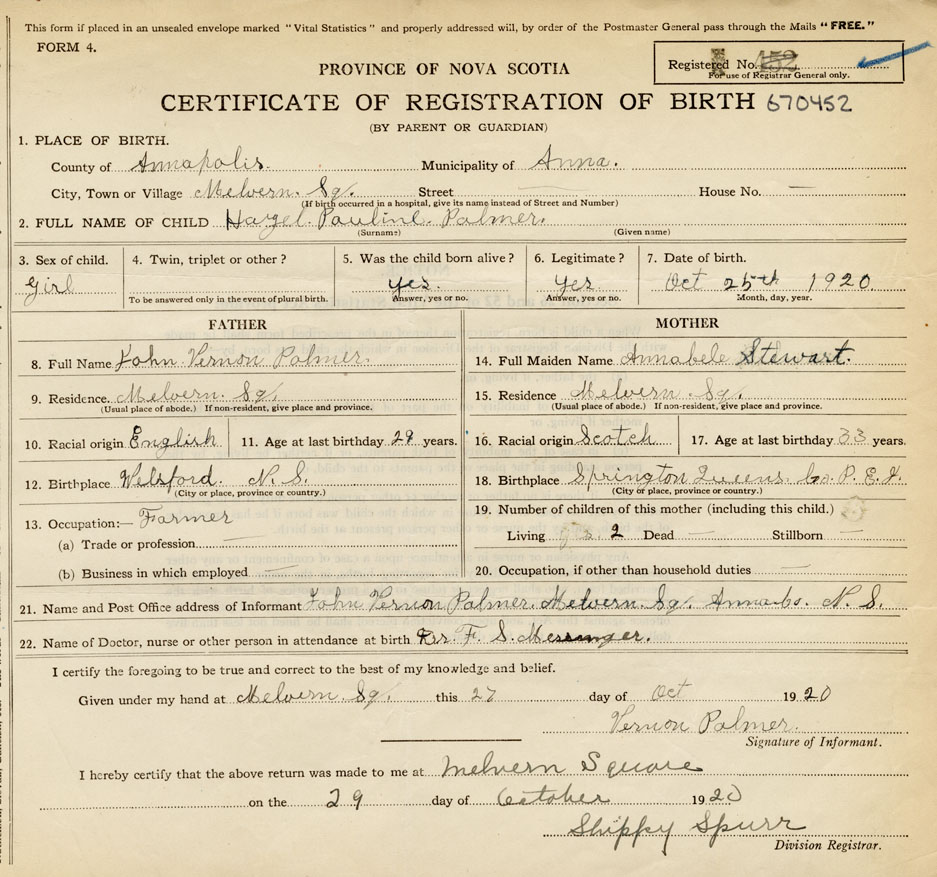 This form if placed in an unsealed envelope marked "Vital Statistics" and properly addressed will, by order of the Postmaster General pass through the Mails "FREE."
FORM 4.
Registered No. 452
For use of Registrar General only.
PROVINCE OF NOVA SCOTIA
CERTIFICATE OF REGISTRATION OF BIRTH 670452
(BY PARENT OR GUARDIAN)
1. PLACE OF BIRTH.
County of Annapolis. Municipality of Anna.
City, Town or Village Melvern. Sq. Street House No. —
(If birth occurred in a hospital, give its name instead of Street and Number)
2. FULL NAME OF CHILD Hazel. Pauline. Palmer.
(Surname) (Given name)
3. Sex of child. 4. Twin, triplet or other? 5. Was the child born alive? 6. Legitimate? 7. Date of birth.
Girl yes. Yes Oct 25th 1920.
To be answered only in the event of plural birth. Answer, yes or no. Answer, yes or no. Month, day, year.
FATHER MOTHER
8. Full Name John Vernon Palmer. 14. Full Maiden Name Annabele Stewart.
9. Residence. Melvern. Sq. 15. Residence Melvern. Sq.
(Usual place of abode.) If non-resident, give place and province. (Usual place of abode.) If non-resident, give place and province.
10. Racial origin English 11. Age at last birthday 29 years. 16. Racial origin Scotch 17. Age at last birthday 33 years.
12. Birthplace Welsford. N. S. 18. Birthplace Springton Queens. Co. P. E. I.
(City or place, province or country.) (City or place, province or country.)
13. Occupation:— Farmer 19. Number of children of this mother (including this child.)
(a) Trade or profession — Living 2 Dead — Stillborn —
(b) Business in which employed — 20. Occupation, if other than household duties —
21. Name and Post Office address of Informant John Vernon Palmer. Melvern. Sq. Anna. Co. N. S.
22. Name of Doctor, nurse or other person in attendance at birth F. S. Messenger.
I certify the foregoing to be true and correct to the best of my knowledge and belief.
Given under my hand at Melvern. Sq. this 27 day of Oct 1920
Vernon Palmer.
Signature of Informant.
I hereby certify that the above return was made to me at Melvern Square
on the 29 day of October 1920
Shippy Spurr
Division Registrar.